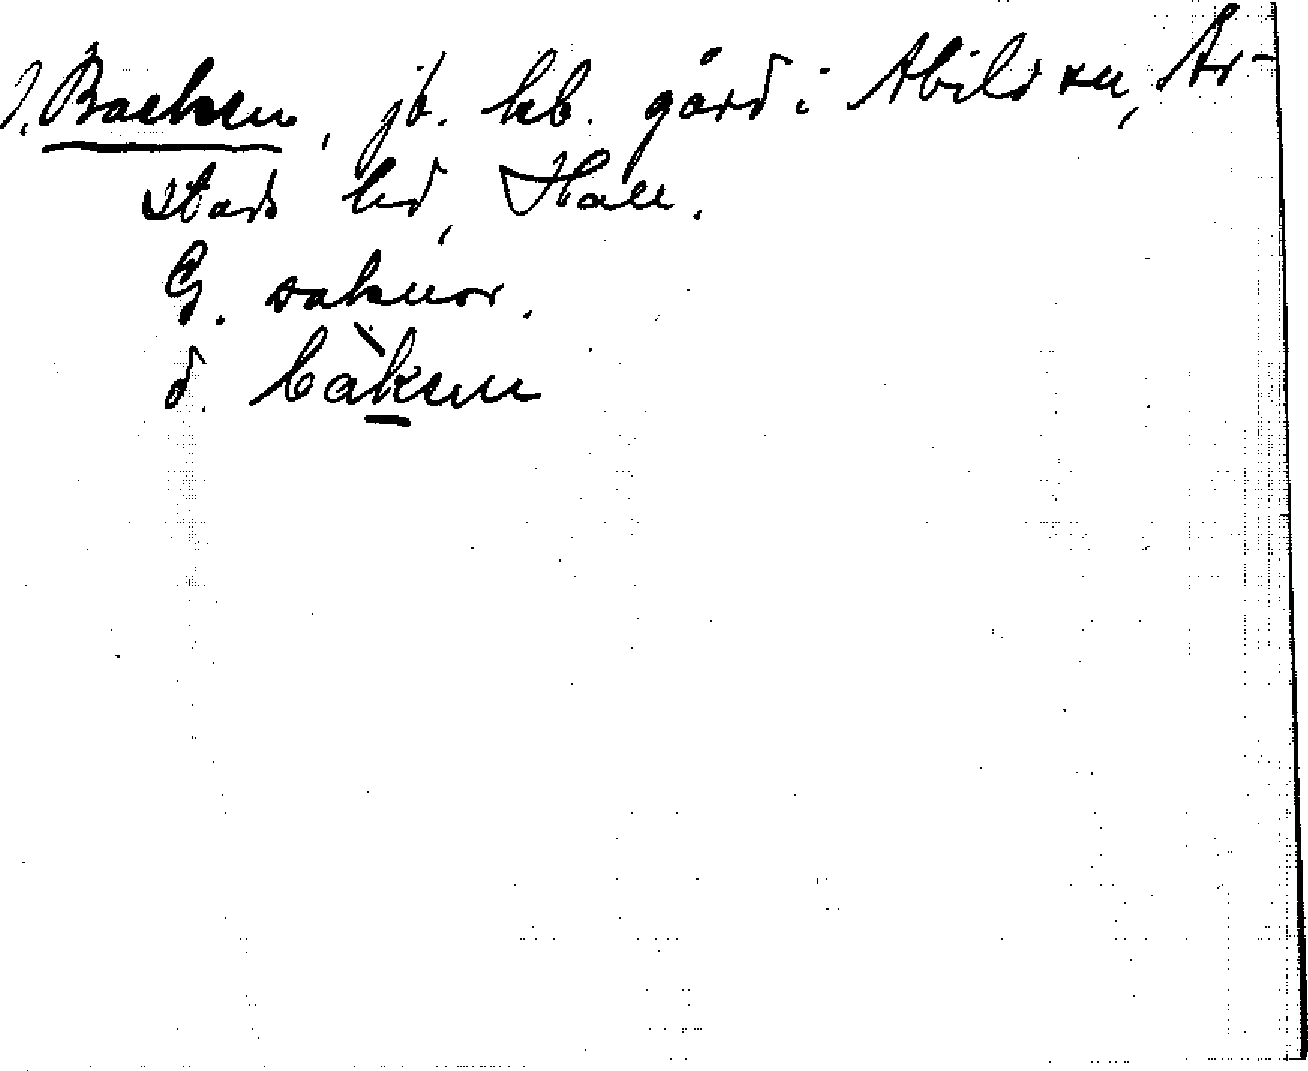 1. Backen, jb. kb. gård i Abild sn, År-
stads hd, Hall.
G. saknar.
d. bàken